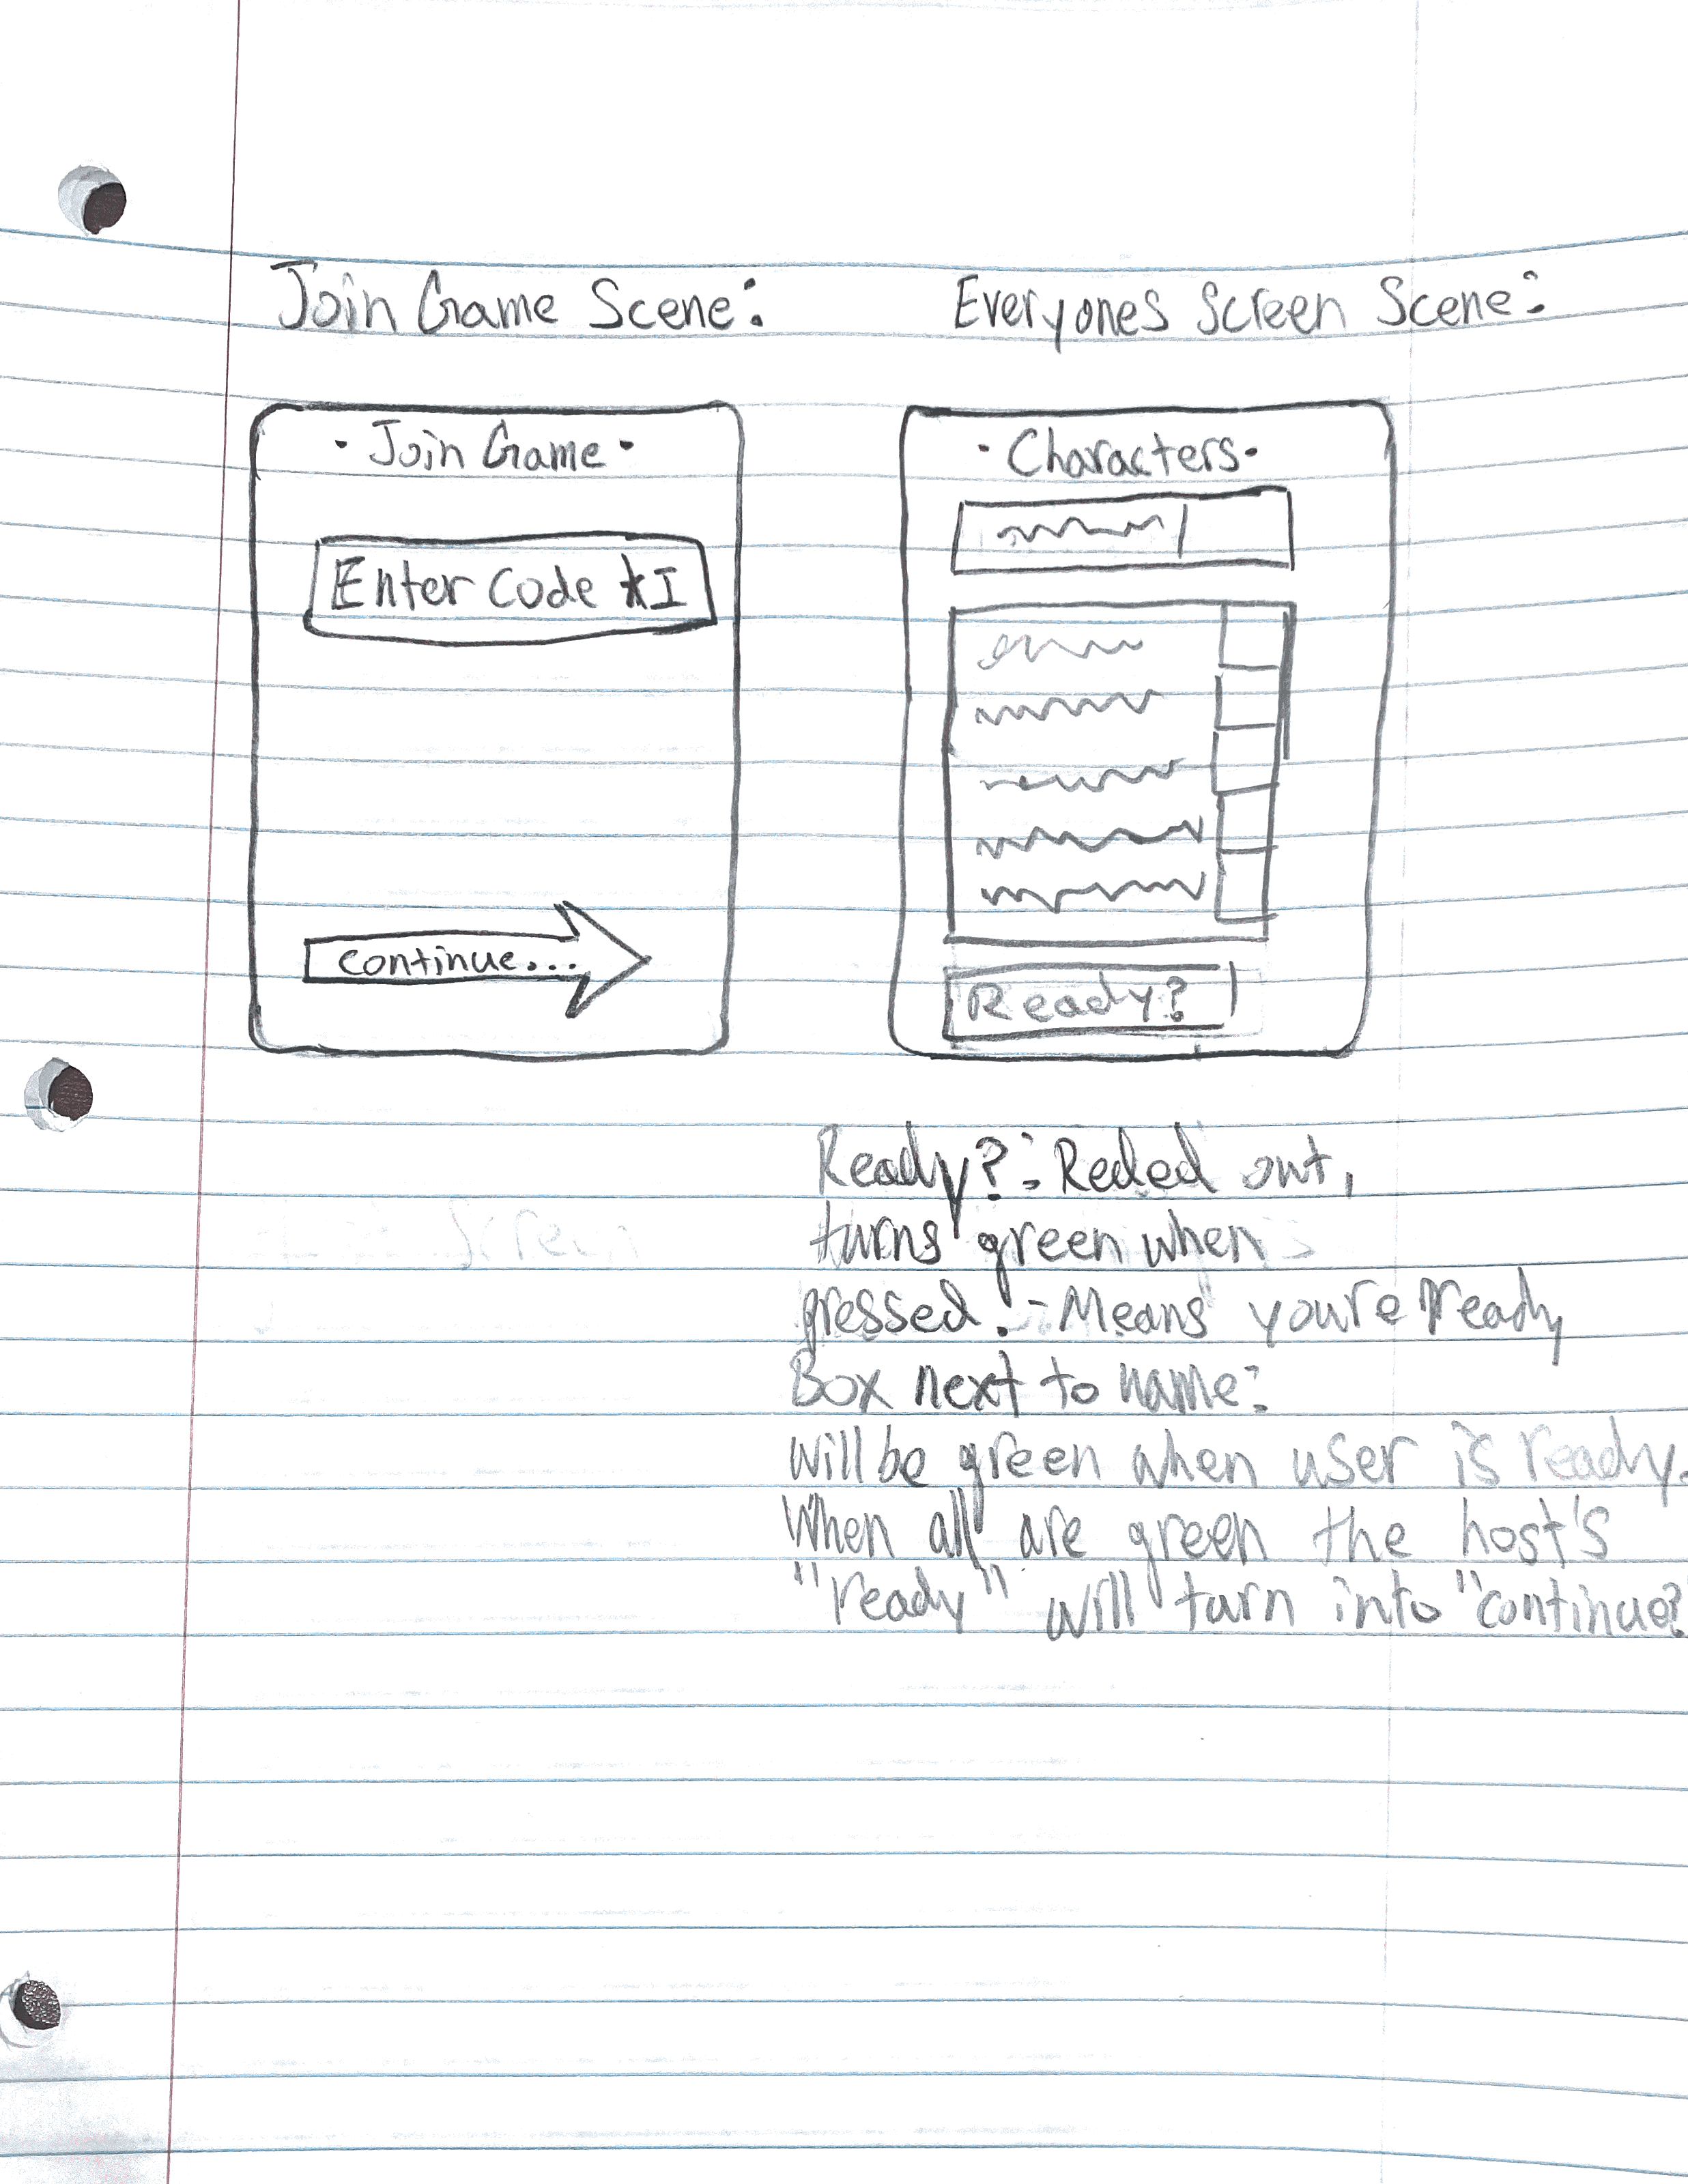 Join Game Scene:
Everyones Screen Scene:
· Join Game ·
Enter Code *I
continue...
· Characters ·
Ready?
Ready?: Reded out,
turns green when
pressed. - Means you're ready
Box next to name:
will be green when user is ready.
When all are green the host's
"ready" will turn into "continue?